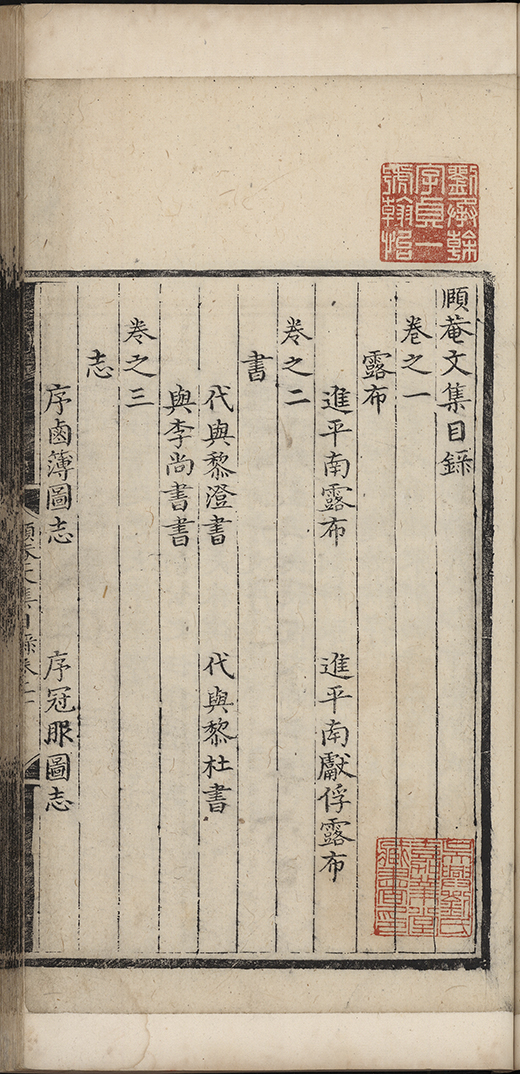 頥菴文集目錄
卷之一
露布
進平南露布 進平南獻俘露布
卷之二
書
代與黎澄書 代與黎杜書
與李尚書書
卷之三
志
序鹵簿圖志 序冠服圖志
劉承幹
字貞一
號翰怡
吳興劉氏
嘉業堂
藏書印